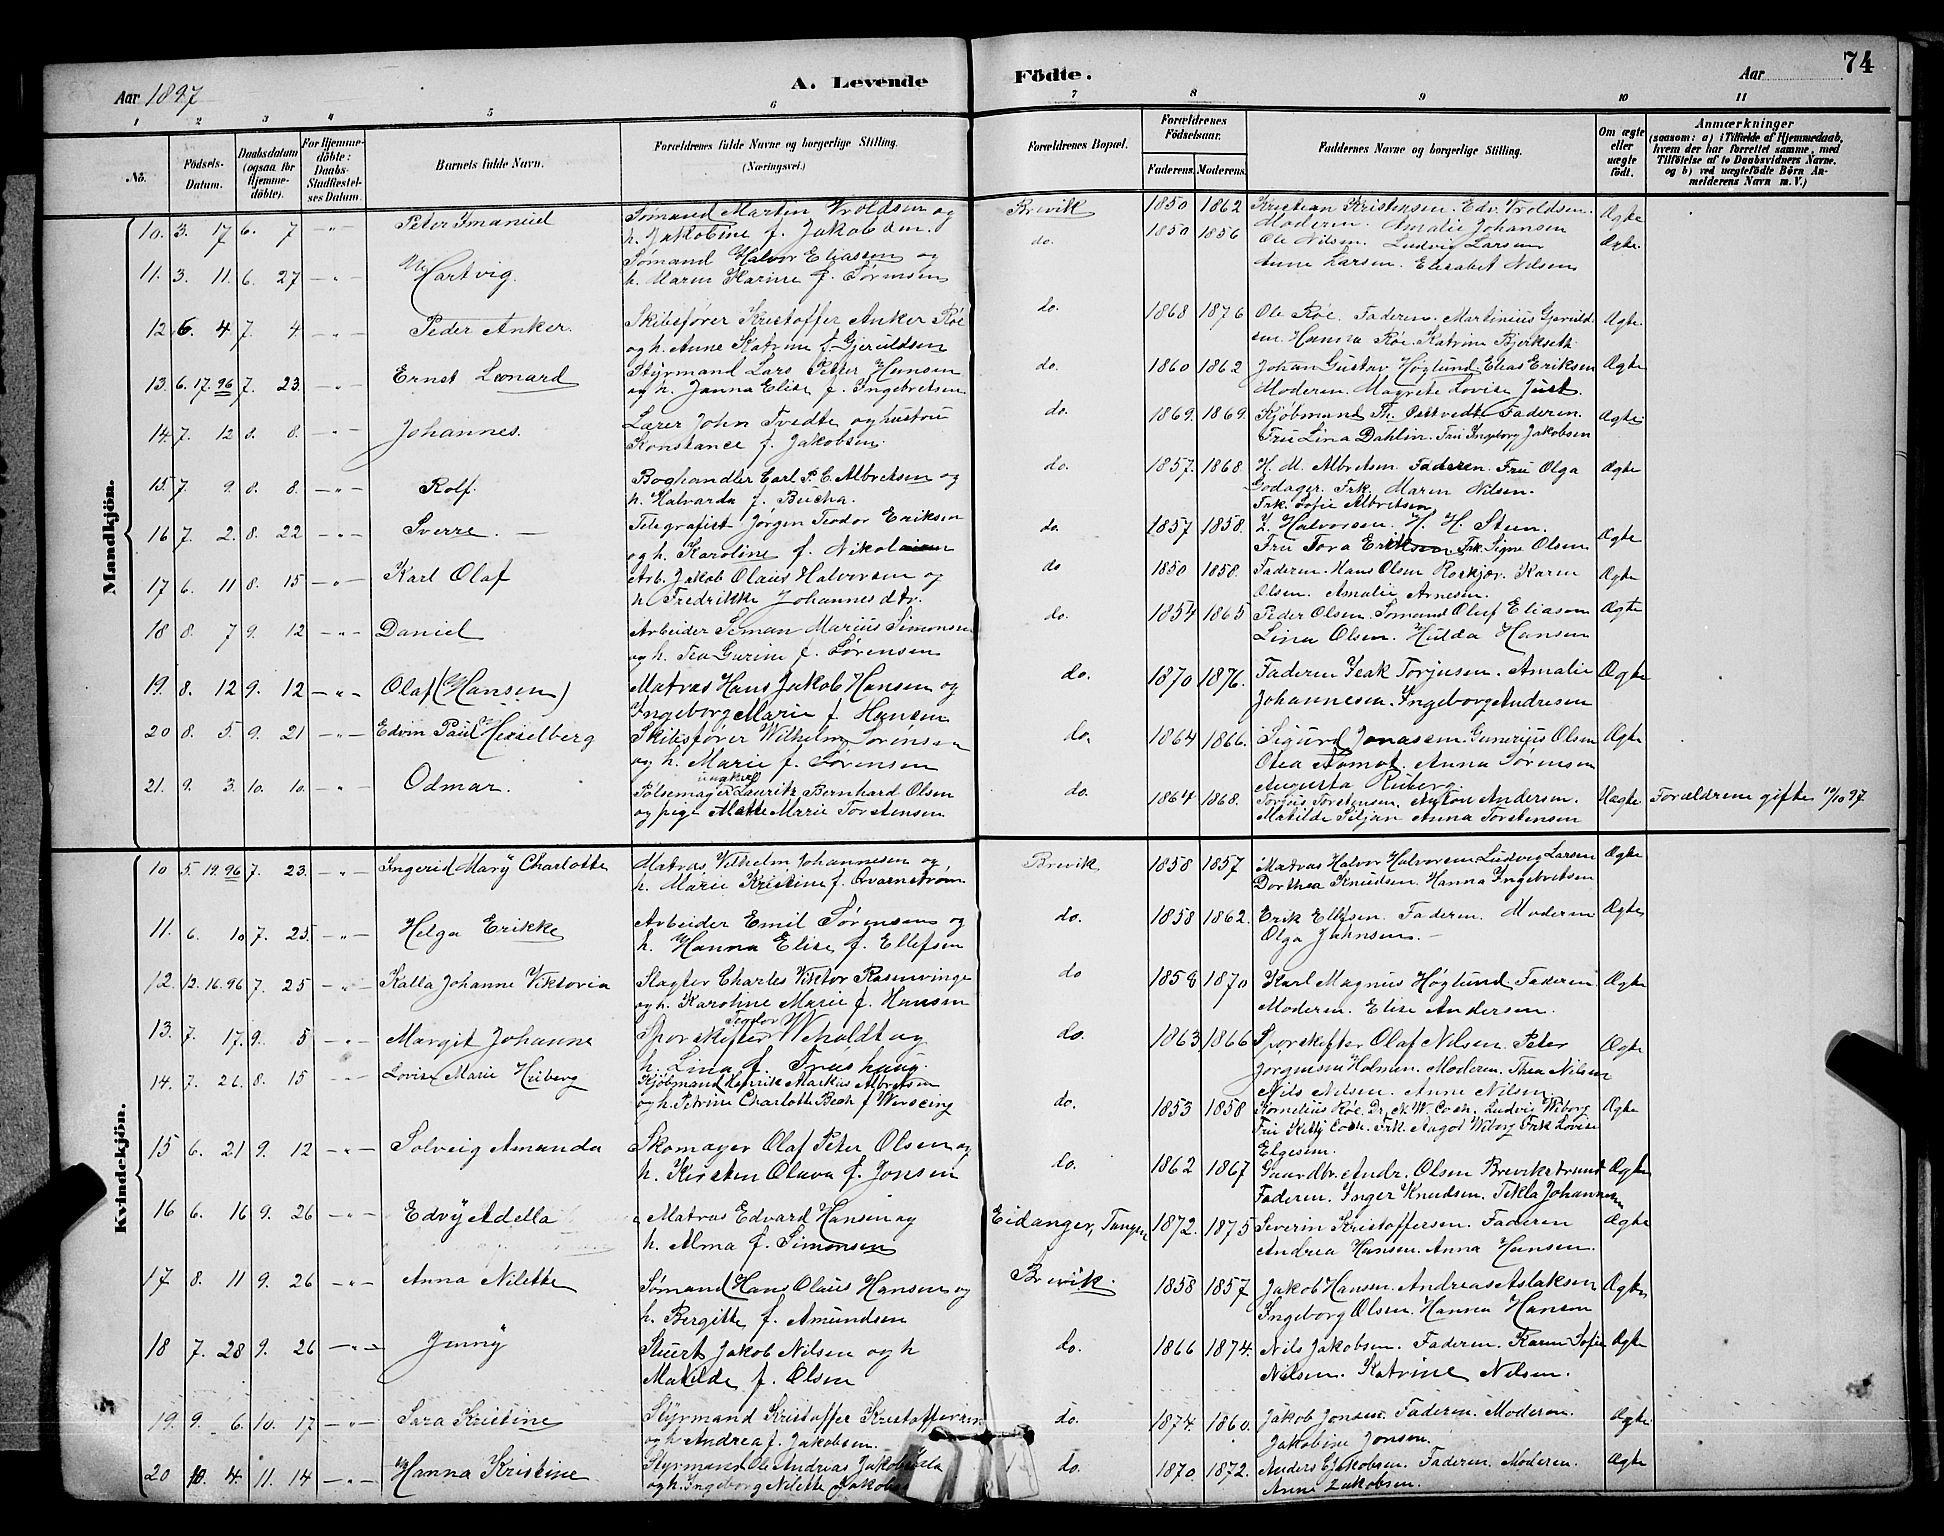 Aar 1897
A. Levende
Födte.
Aar
74
1 2 3 4 5 6 7 8 9 10 11
No.
Födsels-Datum.
Daabsdatum (ogsaa for Hjemmedöbte).
For Hjemmedöbte: Daabs-Stadfæstelses Datum.
Barnets fulde Navn.
Forældrenes fulde Navne og borgerlige Stilling. (Næringsvei.)
Forældrenes Bopæl.
Forældrenes Födselsaar.
Faderens. Moderens.
Faddernes Navne og borgerlige Stilling.
Om ægte eller uægte födt.
Anmærkninger
(saasom: a) i Tilfælde af Hjemmedaab, hvem der har forrettet samme, med Tilföielse af to Daabsvidners Navne. og b) ved uægtefödte Börn Anmelderens Navn m. V.)
Mandkjön.
10. 3. 17 6. 7 — " — Peter Imanuel Sømand Marten Troldsen og Brevik 1850 1862 Kristian Kristensen. Edv. Troldsen. Ægte
h. Jakobine f. Jakobsen. Moderen. Amalie Johansen
11. 3. 11. 6. 27 — " — Hartvig. Sømand Halvor Eliassen og do. 1850 1856 Ole Nilsen. Ludvig Larsen Ægte
h. Maren Karine f. Sørensen Anne Larsen. Elisabet Nilsen
12. 6. 4 7. 4. — " — Peder Anker. Skibsfører Kristoffer Anker Röe do. 1868 1876 Ole Röe. Faderen. Martinius Gjeruldsen. Ægte
og h. Anne Katrine f. Gjeruldsen Hanna Röe. Katrine Bjerkseth.
13. 6. 17. 96 7. 23. — " — Ernst Leonard Styrmand Lars Peter Hansen do. 1860 1862 Johan Gustav Høglund. Elias Eriksen Ægte
og h. Janna Elise f. Ingebretsen Moderen. Magrete Lovise Just
14. 7. 12 8. 8. — " — Johannes. Lærer John Tvedte og hustru do. 1869. 1869. Kjøbmand Th. Faderen. Ægte
Konstance f. Jakobsen. Fru Lina Dahlin. Fru Ingeborg Jakobsen
15. 7. 9. 8. 8. — " — Rolf. Boghandler Carl P. C. Albretsen og do. 1857. 1868. H. M. Albretsen. Faderen. Fru Olga Ægte
h. Halvarda f. Godager. Frk. Maren Nilsen.
Frk. Sofie Albretsen
16. 7. 2. 8. 22 — " — Sverre. — Telegrafist Jørgen Teodor Eriksen do. 1857 1858. Halvorsen. H. H. Steen. Ægte
og h. Karoline f. Nikolaisen Fru Tora Eriksen Frk. Signe Olsen
17. 6. 11 8. 15 — " — Karl Olaf Arb. Jakob Olaus Halvorsen og do 1850 1858. Faderen. Hans Olsen Roskjær. Karen Ægte
h Fredrikke Johannesdtr. Olsen. Amalie Arnesen.
18 8. 7 9. 12 — " — Daniel Arbeider Marius Simonsen do. 1854 1865 Peder Olsen. Sømand Oluf Eliason Ægte
og h. Tea Gurine f. Sørensen Lina Olsen. Hulda Hansen
19. 8. 12 9. 12 — " — Olaf (Hansen) Matros Hans Jakob Hansen og do. 1870 1876. Faderen Isak Torjusen. Amalie Ægte
Ingeborg Marie f. Hansen Johannesen. Ingeborg Andresen
20 8. 5. 9. 21 — " — Edvin Paul Hesselberg Skibsfører Wilhelm Sørensen do. 1864 1866. Sigurd Jonassen. Gunerius Olsen Ægte
og h. Marie f. Sørensen Otea Aamot. Anna Sørensen
Augusta Ruberg.
21. 9. 3. 10. 10. — " — Odmar. ungkarl Pølsemager Lauritz Bernhard Olsen do. 1864 1868. Torjus Torstensen. Anton Andersen. Uægte Forældrene gifte 10/10 97
og pige Mathe Marie Torstensen Matilde Anna Torstensen
Kvindekjön.
10 5. 19. 96 7. 23. — " — Ingerid Mary Charlotte Matros Vilhelm Johannesen og Brevik 1858 1857 Matros Halvor Halvorsen Ludvig Larsen Ægte
h. Marie Kristine f. Qvarnstrøm Dorthea Knudsen. Hanna Ingebretsen
11. 6. 10 7. 25. — " — Helga Erikke Arbeider Emil Sørensen og do. 1858 1862. Erik Ellefsen. Faderen. Moderen Ægte
h. Hanna Elise f. Ellefsen Olga Jahnsen. —
12. 12. 16. 96 7. 25 — " — Kalla Johanne Viktoria Slagter Charles Viktor Rasmvinge do 1858 1870 Karl Magnus Høglund. Faderen Ægte
og h. Karoline Marie f. Hansen Moderen. Elise Andersen.
13. 7. 17. 9. 5 — " — Margit Johanne Sporskifter Teodor Weholdt og do. 1863 1866 Sporskifter Olaf Nilsen. Peter Ægte
h. Lina f. Jørgensen Holmen. Moderen. Thea Nilsen
Nils Nilsen. Anne Nilsen
14. 7. 26. 8. 15 — " — Lovise Marie Heiberg Kjöbmand Henrik Markus Albretsen do. 1853 1858 Kornelius Röe. Dr. N. W. Coch. Ludvig Wiborg Ægte
og h. Petrine Charlotte Bech f Wersein Fru Kitty Coch. Frk. Aagot Wiborg Frk Lovise
Elgesem.
15 6. 21 9. 12 — " — Solveig Amanda Skomager Olaf Peter Olsen og do. 1862 1867 Gaardbr. Andr. Olsen Brevikstrand Ægte
h. Kirsten Olava f. Jonsen Faderen. Inger Knudsen. Tekla Johannesen
16 6. 16 9. 26 — " — Edvy Adella Matros Edvard Hansen og Eidanger, Tangen 1872. 1875 Severin Kristoffersen. Faderen Ægte
h. Alma f. Simonsen Andrea Hansen. Anna Hansen.
17 8. 11 9. 26 — " — Anna Nilette Sømand Hans Olaus Hansen og Brevik. 1858 1857 Jakob Hansen. Andreas Aslaksen Ægte
h. Bergitte f. Amundsen Ingeborg Olsen. Hanna Hansen
18 7. 28 9. 26 — " — Jenny Stuert Jakob Nilsen og h do. 1866 1874. Nils Jakobsen. Faderen. Karen Sofie Ægte
Matilde f. Olsen Nilsen. Katrine Nilsen.
19. 9. 6. 10. 17 — " — Sara Kristine Styrmand Kristoffer Kristoffersen do. 1874. 1860. Jakob Jonsen. Faderen. Moderen. Ægte
og h Andrea f. Jakobsen. Jakobine Jonsen.
20 10. 4 11. 14 — " — Hanna Kristine Styrmand Ole Andreas do. 1870. 1872. Anders Jakobsen. Faderen. Moderen. Ægte
og h. Ingeborg Nilette Jakobsen Anne Jakobsen.